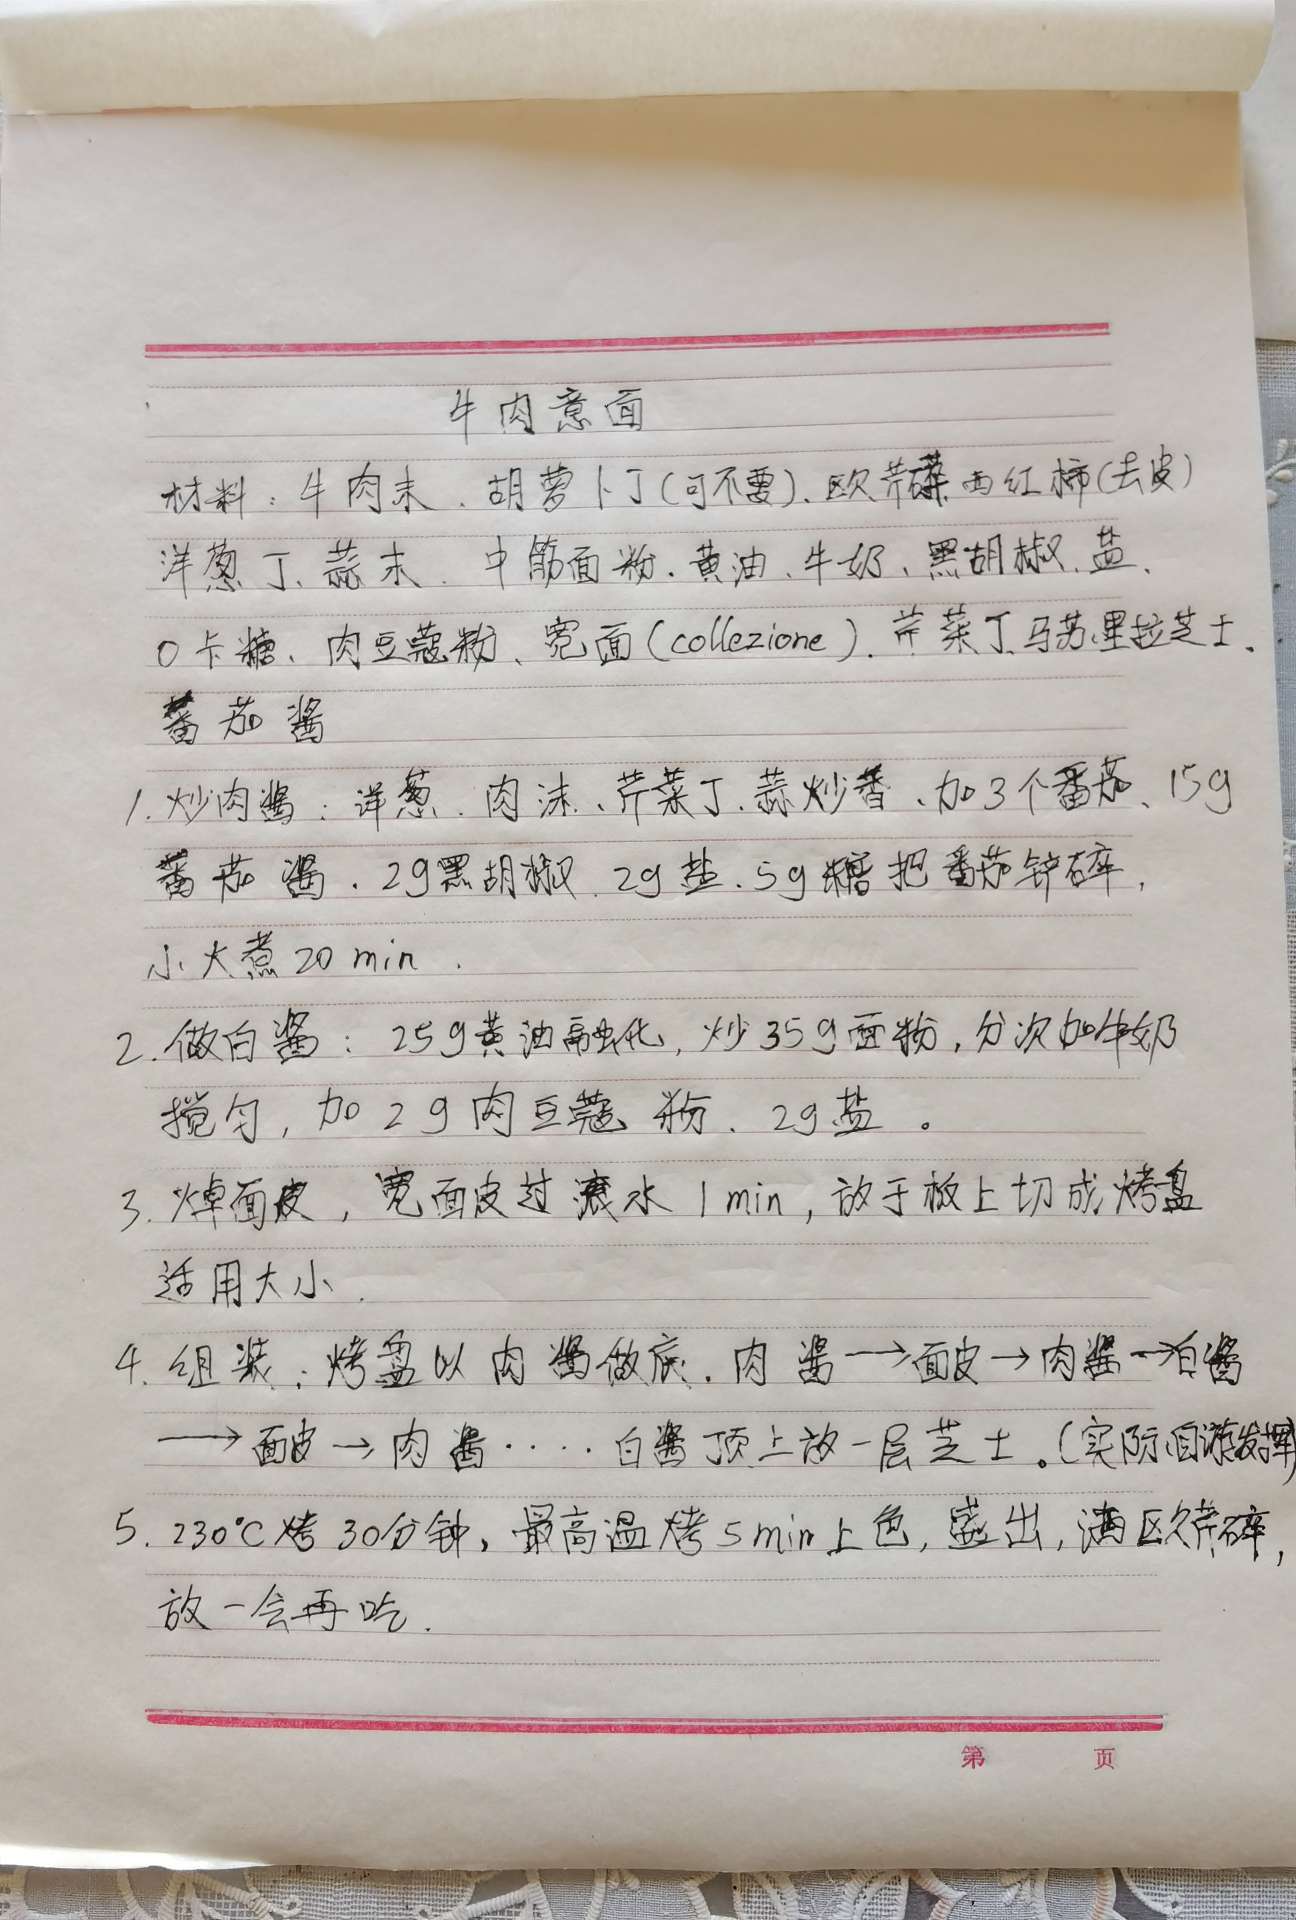 牛肉意面
材料：牛肉末、胡萝卜丁(可不要)、欧芹碎 西红柿(去皮)
洋葱丁、蒜末、中筋面粉、黄油、牛奶、黑胡椒、盐、
0卡糖、肉豆蔻粉、宽面(collezione)、芹菜丁、马苏里拉芝士、
蕃茄酱
1.炒肉酱：洋葱、肉沫、芹菜丁、蒜炒香、加3个番茄、15g
蕃茄酱、2g黑胡椒、2g盐、5g糖把番茄铲碎，
小火煮20min.
2.做白酱：25g黄油融化，炒35g面粉，分次加牛奶
搅匀，加2g肉豆蔻粉、2g盐。
3.焯面皮，宽面皮过滚水1min，放于板上切成烤盘
适用大小.
4.组装：烤盘以肉酱做底.肉酱→面皮→肉酱→白酱
→面皮→肉酱·····白酱顶上放一层芝士。(实际自由发挥)
5.230℃烤30分钟，最高温烤5min上色，盛出，洒欧芹碎，
放一会再吃.
第 页